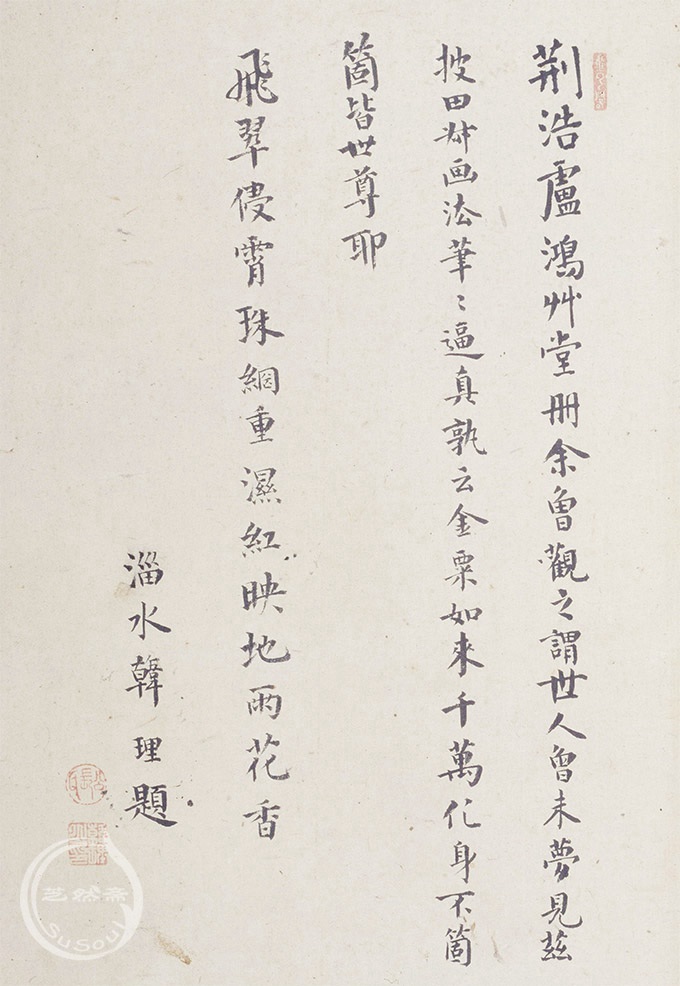 荆浩盧鴻艸堂册余曾觀之謂世人曾未夢見茲
披田叔画法筆〻逼真孰云金粟如來千萬化身不箇
箇皆世尊耶
飛翠侵霄珠網重濕紅映地雨花香
淄水韓理題
芝然斋
SuSoul